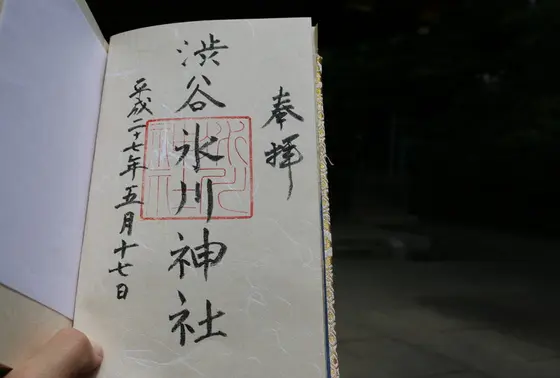 奉拝
渋谷氷川神社
平成二十七年五月十七日